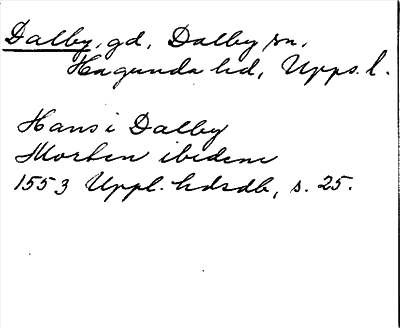 Dalby, gd, Dalby sn,
Hagunda hd, Upps. l.
Hans i Dalby
Morten ibidem
1553 Uppl. hdrdb, s. 25.